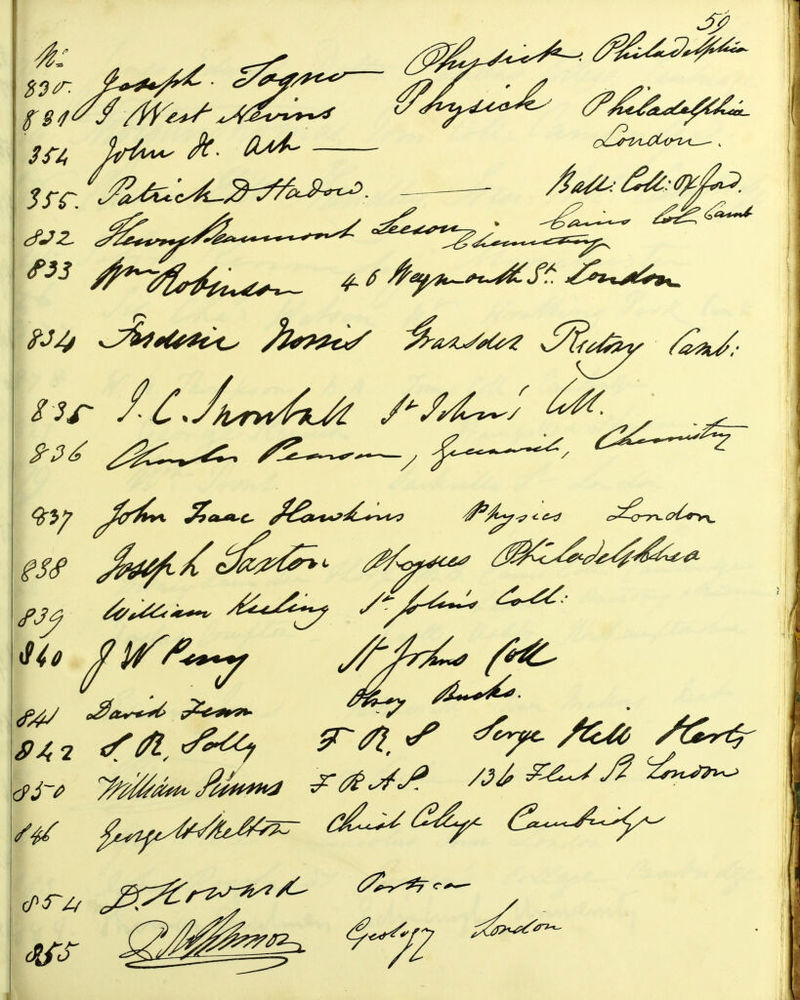 59
No.
830. Joseph Togno Physick. Philadelphia
831 J West Nevins Physick Philadelphia
354 John H. Ash — London.
355. Patrick D Hadow. — Ball: Coll: Oxford.
832 Henry Beaumont Leeson. Caius Col Camb
Chemistry
833 Wm Robinson 46 Weymouth St. London
834 Frederic Norris Gransden Rectory Camb:
835 J. C. Snowball St John's Coll.
836 Charles Pearson, Greenwich, Chemistry
837 John Isaac Hawkins Physics London
838 Joseph Saxton Physics Philadelphia
839 William Keeling St. John's Coll:
840 J W Perry St Johns Coll
841 David Fenn Olney Bucks.
842 S. R. Solly F R. S Serge Hill Herts
850 William Simms F R A S. 136 Fleet St London
846 George Skelton Christ College Cambridge
854 D. Howard
855 Geology London